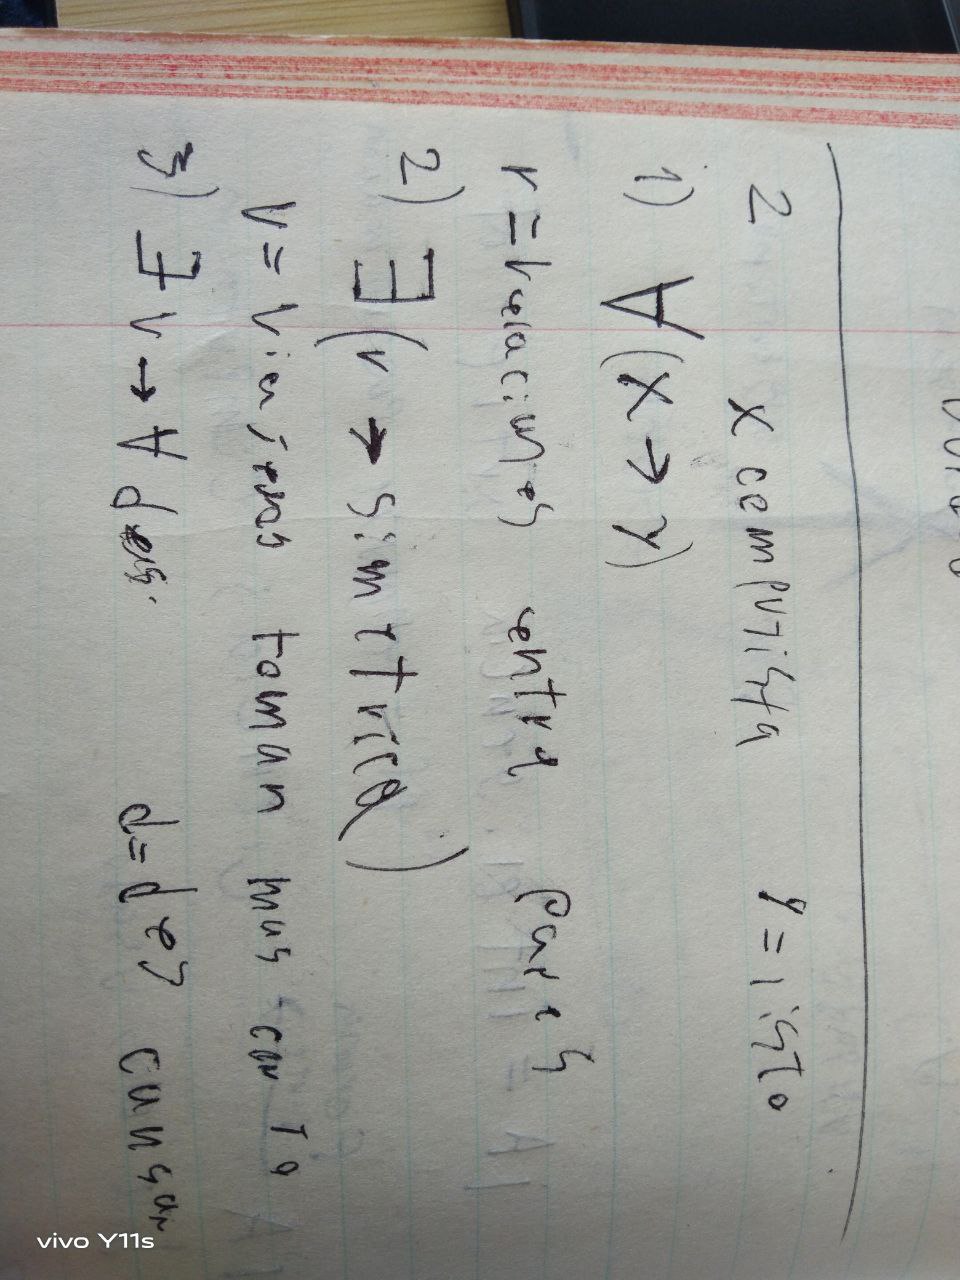 2 x computista y = listo
1) ∀ (x → y)
r = relaciones entre pares
2) ∃ (r → simetrica)
v = viajeros toman mas corta
3) ∃ v → A d
d = descansar
vivo Y11s